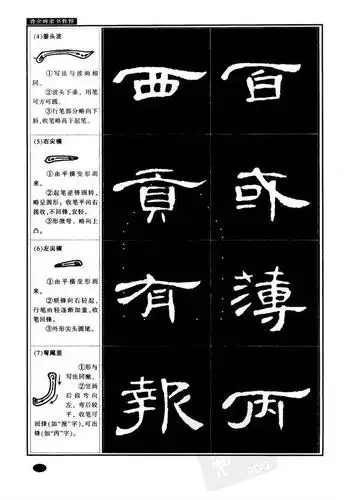 曹全碑隶书教程
(4)垂头波
①写法与波画相
同。
②波头下垂,用笔
可方可圆。
③行笔部分略向下
斜,收笔略高于起笔。
西
百
(5)右尖横
①由平横变形而
来。
②起笔逆锋圆转,
略呈圆形;收笔平向右
提收,不回锋,宜轻。
③形微弯,略向上
凸。
貢
或
(6)左尖横
①由平横变形而
来。
②顺锋向右轻起,
行笔由轻逐渐加重,收
笔回锋。
③外形尖头圆尾。
有
薄
(7)弯尾竖
①形与
写法同撇。
②竖画
后段弯向
左,弯后较
平,收笔可
回锋(如“报”字),可出
锋(如“丙”字)。
報
丙